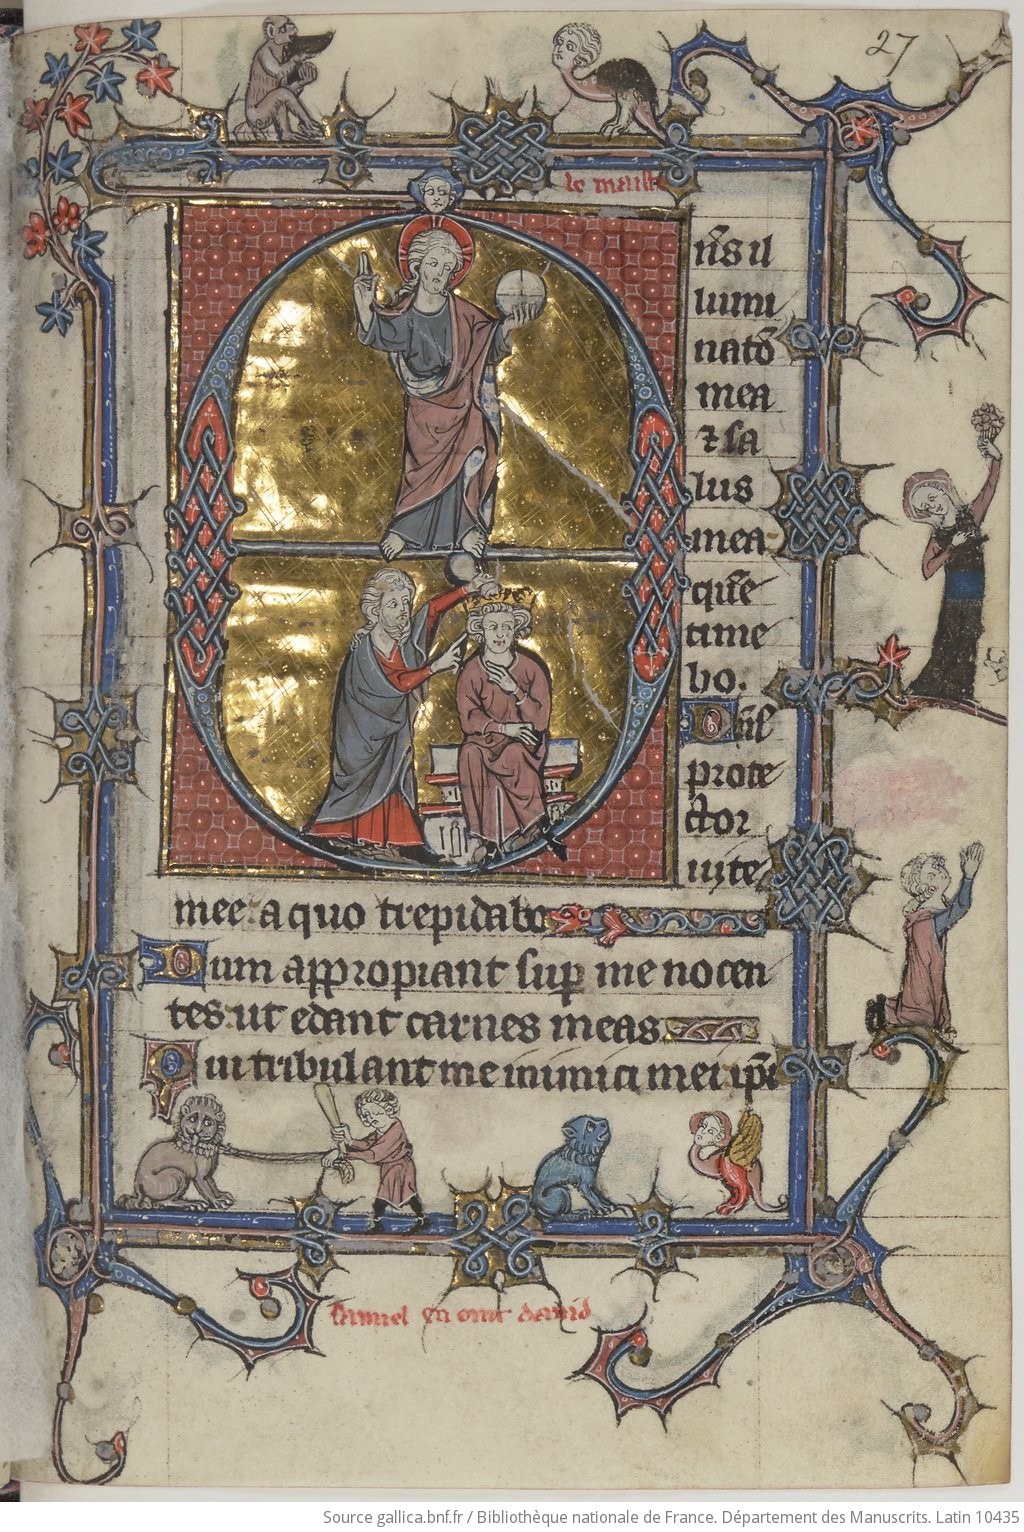 27
le maistre
n̄s il
lumi
natō
mea
⁊ sa
lus
mea
quē
time
bo.
Dn̄s
prote
ctor
uite
mee: a quo trepidabo
Cum appropiant sup me nocen
tes: ut edant carnes meas
Qui tribulant me inimici mei ip̄i
samuel en oint dauid
Source gallica.bnf.fr / Bibliothèque nationale de France. Département des Manuscrits. Latin 10435